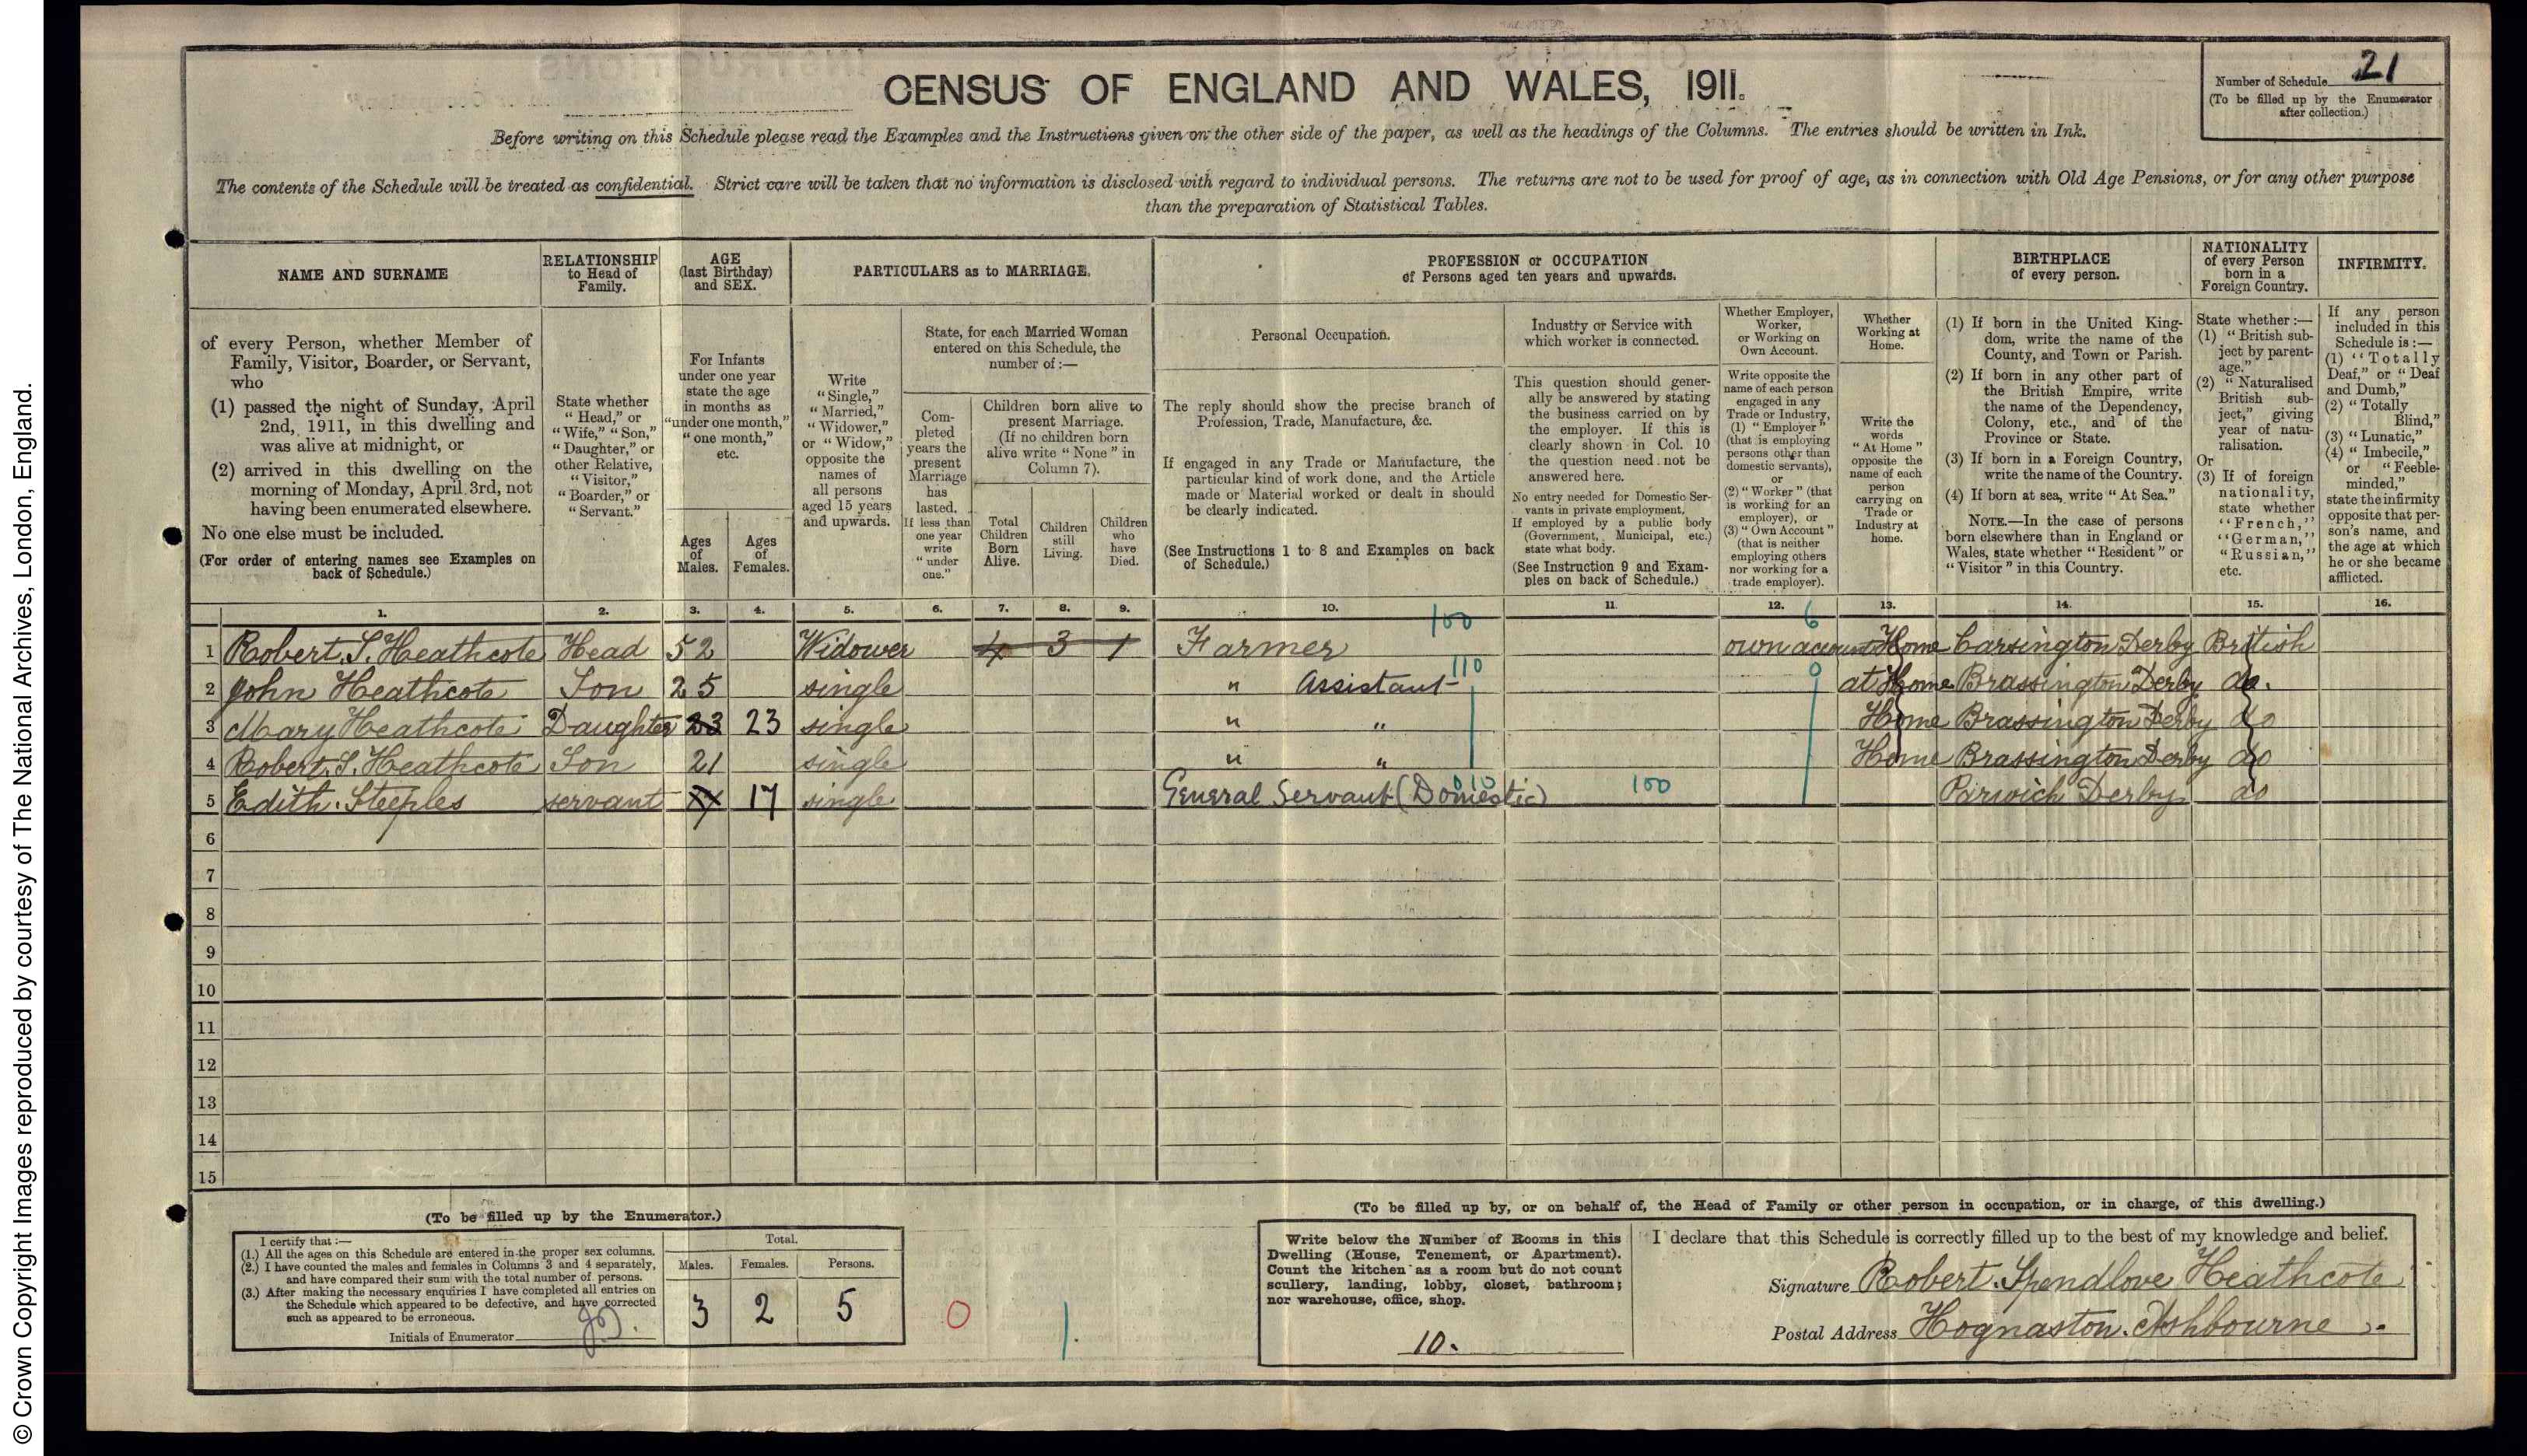 © Crown Copyright Images reproduced by courtesy of The National Archives, London, England.
CENSUS OF ENGLAND AND WALES, 1911.
Number of Schedule 21
(To be filled up by the Enumerator after collection.)
Before writing on this Schedule please read the Examples and the Instructions given on the other side of the paper, as well as the headings of the Columns. The entries should be written in Ink.
The contents of the Schedule will be treated as confidential. Strict care will be taken that no information is disclosed with regard to individual persons. The returns are not to be used for proof of age, as in connection with Old Age Pensions, or for any other purpose
than the preparation of Statistical Tables.
NAME AND SURNAME
of every Person, whether Member of
Family, Visitor, Boarder, or Servant,
who
(1) passed the night of Sunday, April
2nd, 1911, in this dwelling and
was alive at midnight, or
(2) arrived in this dwelling on the
morning of Monday, April 3rd, not
having been enumerated elsewhere.
No one else must be included.
(For order of entering names see Examples on
back of Schedule.)
RELATIONSHIP
to Head of
Family.
State whether
"Head," or
"Wife," "Son,"
"Daughter," or
other Relative,
"Visitor,"
"Boarder," or
"Servant."
AGE
(last Birthday)
and SEX.
For Infants
under one year
state the age
in months as
"under one month,"
"one month,"
etc.
Ages
of
Males.
Ages
of
Females.
PARTICULARS as to MARRIAGE.
Write
"Single,"
"Married,"
"Widower,"
or "Widow,"
opposite the
names of
all persons
aged 15 years
and upwards.
State, for each Married Woman
entered on this Schedule, the
number of:—
Com-
pleted
years the
present
Marriage
has
lasted.
If less than
one year
write
"under
one."
Children born alive to
present Marriage.
(If no children born
alive write "None" in
Column 7).
Total
Children
Born
Alive.
Children
still
Living.
Children
who
have
Died.
PROFESSION or OCCUPATION
of Persons aged ten years and upwards.
Personal Occupation.
The reply should show the precise branch of
Profession, Trade, Manufacture, &c.
If engaged in any Trade or Manufacture, the
particular kind of work done, and the Article
made or Material worked or dealt in should
be clearly indicated.
(See Instructions 1 to 8 and Examples on back
of Schedule.)
Industry or Service with
which worker is connected.
This question should gener-
ally be answered by stating
the business carried on by
the employer. If this is
clearly shown in Col. 10
the question need not be
answered here.
No entry needed for Domestic Ser-
vants in private employment.
If employed by a public body
(Government, Municipal, etc.)
state what body.
(See Instruction 9 and Exam-
ples on back of Schedule.)
Whether Employer,
Worker,
or Working on
Own Account.
Write opposite the
name of each person
engaged in any
Trade or Industry,
(1) "Employer"
(that is employing
persons other than
domestic servants),
or
(2) "Worker" (that
is working for an
employer), or
(3) "Own Account"
(that is neither
employing others
nor working for a
trade employer).
Whether
Working at
Home.
Write the
words
"At Home"
opposite the
name of each
person
carrying on
Trade or
Industry at
home.
BIRTHPLACE
of every person.
(1) If born in the United King-
dom, write the name of the
County, and Town or Parish.
(2) If born in any other part of
the British Empire, write
the name of the Dependency,
Colony, etc., and of the
Province or State.
(3) If born in a Foreign Country,
write the name of the Country.
(4) If born at sea, write "At Sea."
NOTE.—In the case of persons
born elsewhere than in England or
Wales, state whether "Resident" or
"Visitor" in this Country.
NATIONALITY
of every Person
born in a
Foreign Country.
State whether:—
(1) "British sub-
ject by parent-
age."
(2) "Naturalised
British sub-
ject," giving
year of natu-
ralisation.
Or
(3) If of foreign
nationality,
state whether
"French,"
"German,"
"Russian,"
etc.
INFIRMITY.
If any person
included in this
Schedule is:—
(1) "Totally
Deaf," or "Deaf
and Dumb,"
(2) "Totally
Blind,"
(3) "Lunatic,"
(4) "Imbecile,"
or "Feeble-
minded,"
state the infirmity
opposite that per-
son's name, and
the age at which
he or she became
afflicted.
1. 2. 3. 4. 5. 6. 7. 8. 9. 10. 11. 12. 13. 14. 15. 16.
100 6
1 Robert. S. Heathcote Head 52 Widower 4 3 1 Farmer own account Home Carsington Derby British
2 John Heathcote Son 25 single " Assistant 110 0 at Home Brassington Derby do.
3 Mary Heathcote Daughter 23 23 single " " Home Brassington Derby do
4 Robert. S. Heathcote Son 21 single " " Home Brassington Derby do
5 Edith. Steeples servant 17 single General Servant (Domestic) 010 100 Parwich Derby do
6
7
8
9
10
11
12
13
14
15
(To be filled up by the Enumerator.)
I certify that:—
(1.) All the ages on this Schedule are entered in the proper sex columns.
(2.) I have counted the males and females in Columns 3 and 4 separately,
and have compared their sum with the total number of persons.
(3.) After making the necessary enquiries I have completed all entries on
the Schedule which appeared to be defective, and have corrected
such as appeared to be erroneous.
Initials of Enumerator
Total.
Males. Females. Persons.
3 2 5
0 1.
(To be filled up by, or on behalf of, the Head of Family or other person in occupation, or in charge, of this dwelling.)
Write below the Number of Rooms in this
Dwelling (House, Tenement, or Apartment).
Count the kitchen as a room but do not count
scullery, landing, lobby, closet, bathroom;
nor warehouse, office, shop.
10.
I declare that this Schedule is correctly filled up to the best of my knowledge and belief.
Signature Robert. Spendlove Heathcote
Postal Address Hognaston. Ashbourne